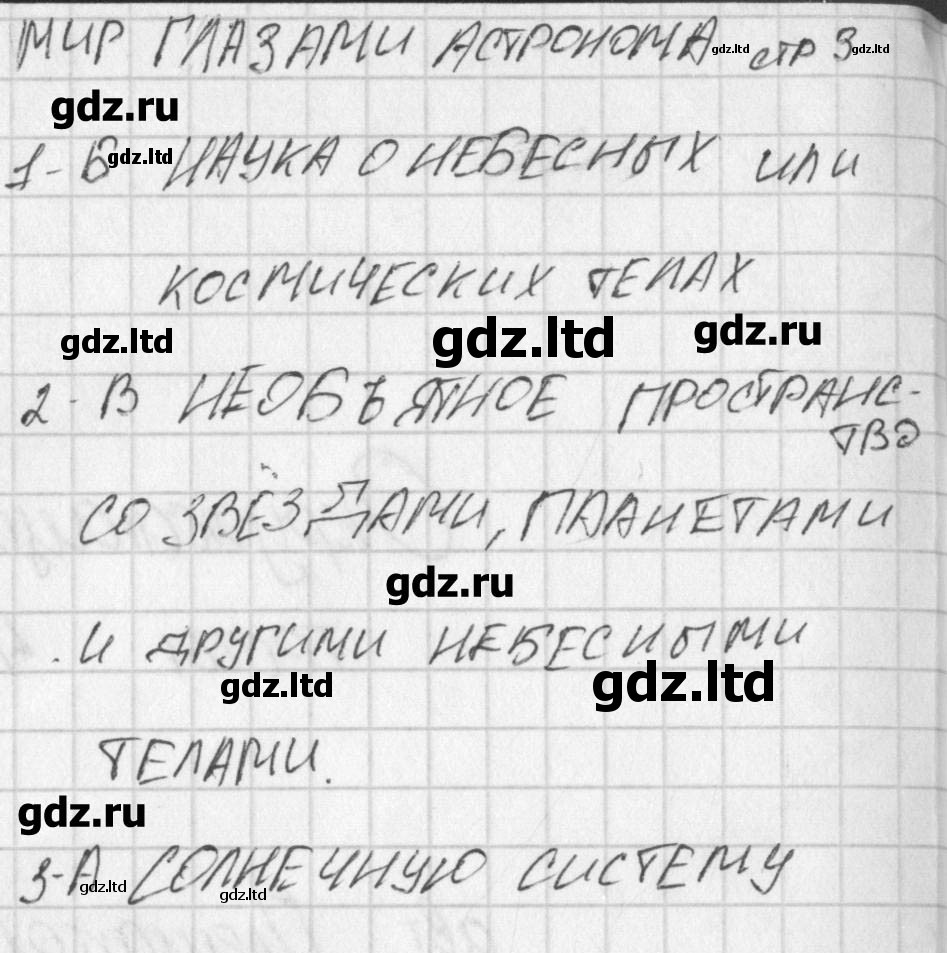 МИР ГЛАЗАМИ АСТРОНОМА gdz.ltd стр 3 gdz.ltd
gdz.ru
1-Б gdz.ltd НАУКА О НЕБЕСНЫХ ИЛИ
КОСМИЧЕСКИХ ТЕЛАХ
gdz.ltd gdz.ltd gdz.ru
2-В НЕОБЪЯТНОЕ ПРОСТРАНС-
ТВО
СО ЗВЁЗДАМИ, ПЛАНЕТАМИ
gdz.ru
И ДРУГИМИ НЕБЕСНЫМИ
gdz.ltd gdz.ltd
ТЕЛАМИ.
gdz.ru
3-А СОЛНЕЧНУЮ СИСТЕМУ
gdz.ltd gdz.ltd